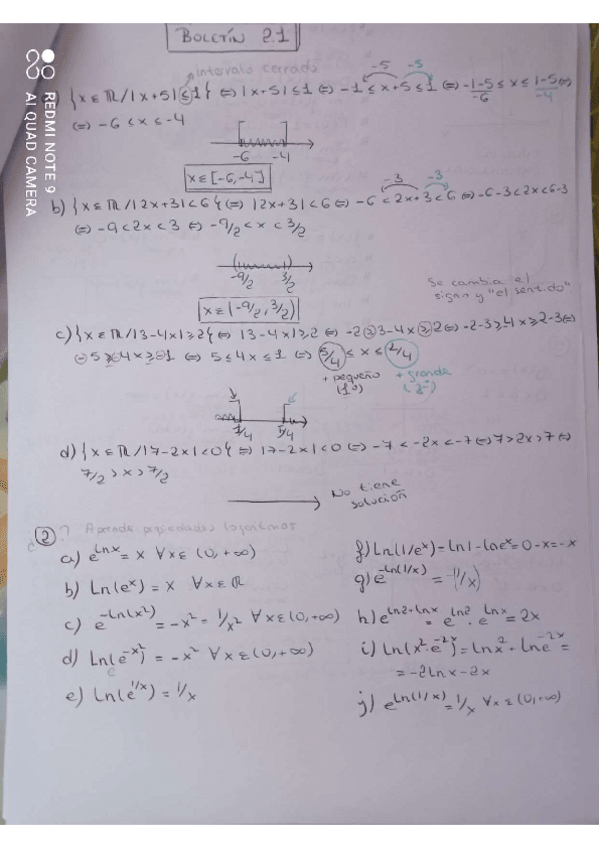 BOLETÍN 2.1
intervalo cerrado
-5 -5
a) {x ∈ ℝ / |x+5| ≤ 1} ⇔ |x+5| ≤ 1 ⇔ -1 ≤ x+5 ≤ 1 ⇔ -1-5 ≤ x ≤ 1-5 ⇔
-6 -4
⇔ -6 ≤ x ≤ -4
-6 -4
x ∈ [-6,-4]
-3 -3
b) {x ∈ ℝ / |2x+3| < 6} ⇔ |2x+3| < 6 ⇔ -6 < 2x+3 < 6 ⇔ -6-3 < 2x < 6-3
⇔ -9 < 2x < 3 ⇔ -9/2 < x < 3/2
-9/2 3/2
Se cambia el
signo y "el sentido"
x ∈ (-9/2, 3/2)
c) {x ∈ ℝ / |3-4x| ≥ 2} ⇔ |3-4x| ≥ 2 ⇔ -2 ≥ 3-4x ≥ 2 ⇔ -2-3 ≥ 4x ≥ 2-3 ⇔
-5 ≥ -4x ≥ -1 ⇔ 5 ≤ 4x ≤ 1 ⇔ 5/4 ≤ x ≤ 1/4
+ pequeño + grande
(1º) (2º)
1/4 5/4
d) {x ∈ ℝ / |7-2x| < 0} ⇔ |7-2x| < 0 ⇔ -7 < -2x < -7 ⇔ 7 > 2x > 7 ⇔
7/2 > x > 7/2
No tiene
solución
② ? Aprende propiedades logaritmos
a) e^{Lnx} = x ∀x ∈ (0, +∞)
b) Ln(eˣ) = x ∀x ∈ ℝ
c) e^{-Ln(x²)} = -x² = 1/x² ∀x ∈ (0, +∞)
d) Ln(e^{-x²}) = -x² ∀x ∈ (0, +∞)
e) Ln(e^{1/x}) = 1/x
f) Ln(1/eˣ) = Ln1 - lneˣ = 0 - x = -x
g) e^{-Ln(1/x)} = -(1/x)
h) e^{Ln2+Lnx} = e^{Ln2} · e^{Lnx} = 2x
i) Ln(x²·e^{-2x}) = Lnx² + Lne^{-2x} =
= -2Lnx - 2x
j) e^{Ln(1/x)} = 1/x ∀x ∈ (0, +∞)
REDMI NOTE 9
AI QUAD CAMERA